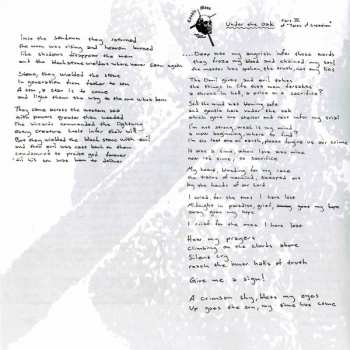 Into the sandman they returned
the moon was rising and heaven burned
like shadows disappears the moon
and the blackstone wielders where never seen again
Silence, they wielded the stone
in generation from father to son
A son, a star is to come
and light them the way to the one which born
They came across the western sea
with powers greater than needed
The wizards commanded the lightning
every creature knelt infor their will
But they wielded the black stone with evil
and their evil was cast back on them
condemned to praise god forever
till his son have been the deliver
Under the Oak
Part III
of "Tears of
....Deep was my anguish infor those words
they froze my blood and chained my soul
the master has spoken, the truth, not my lies
The Devil gives and evil takes
the things in life ever men forsaking
a throne in hell, a price or a sacrifice?
Let the wind blow Wearily safe
and gentle back under the oak
which gave me shelter and rest infor my trial
I'm not strong, weak is my mind
a new beginning, where to find?
I'm six feet one of earth, please forgive us our crime
It was a time, when love was mine
now it's alone, so sacrifice
My heart, bleeding for my race
the tears of mankind, smeared out
by the hands of our Lord
I cried for the ones I have lost
Midnight in paradise, grief, away goes my hope
away goes my hope
I cried for the ones I have lost
How my prayers
climbing on the clouds above
Silent cry
reach the inner halls of truth
Give me a sign!
A crimson sky, bless my eyes
Up goes the sun, my time has come